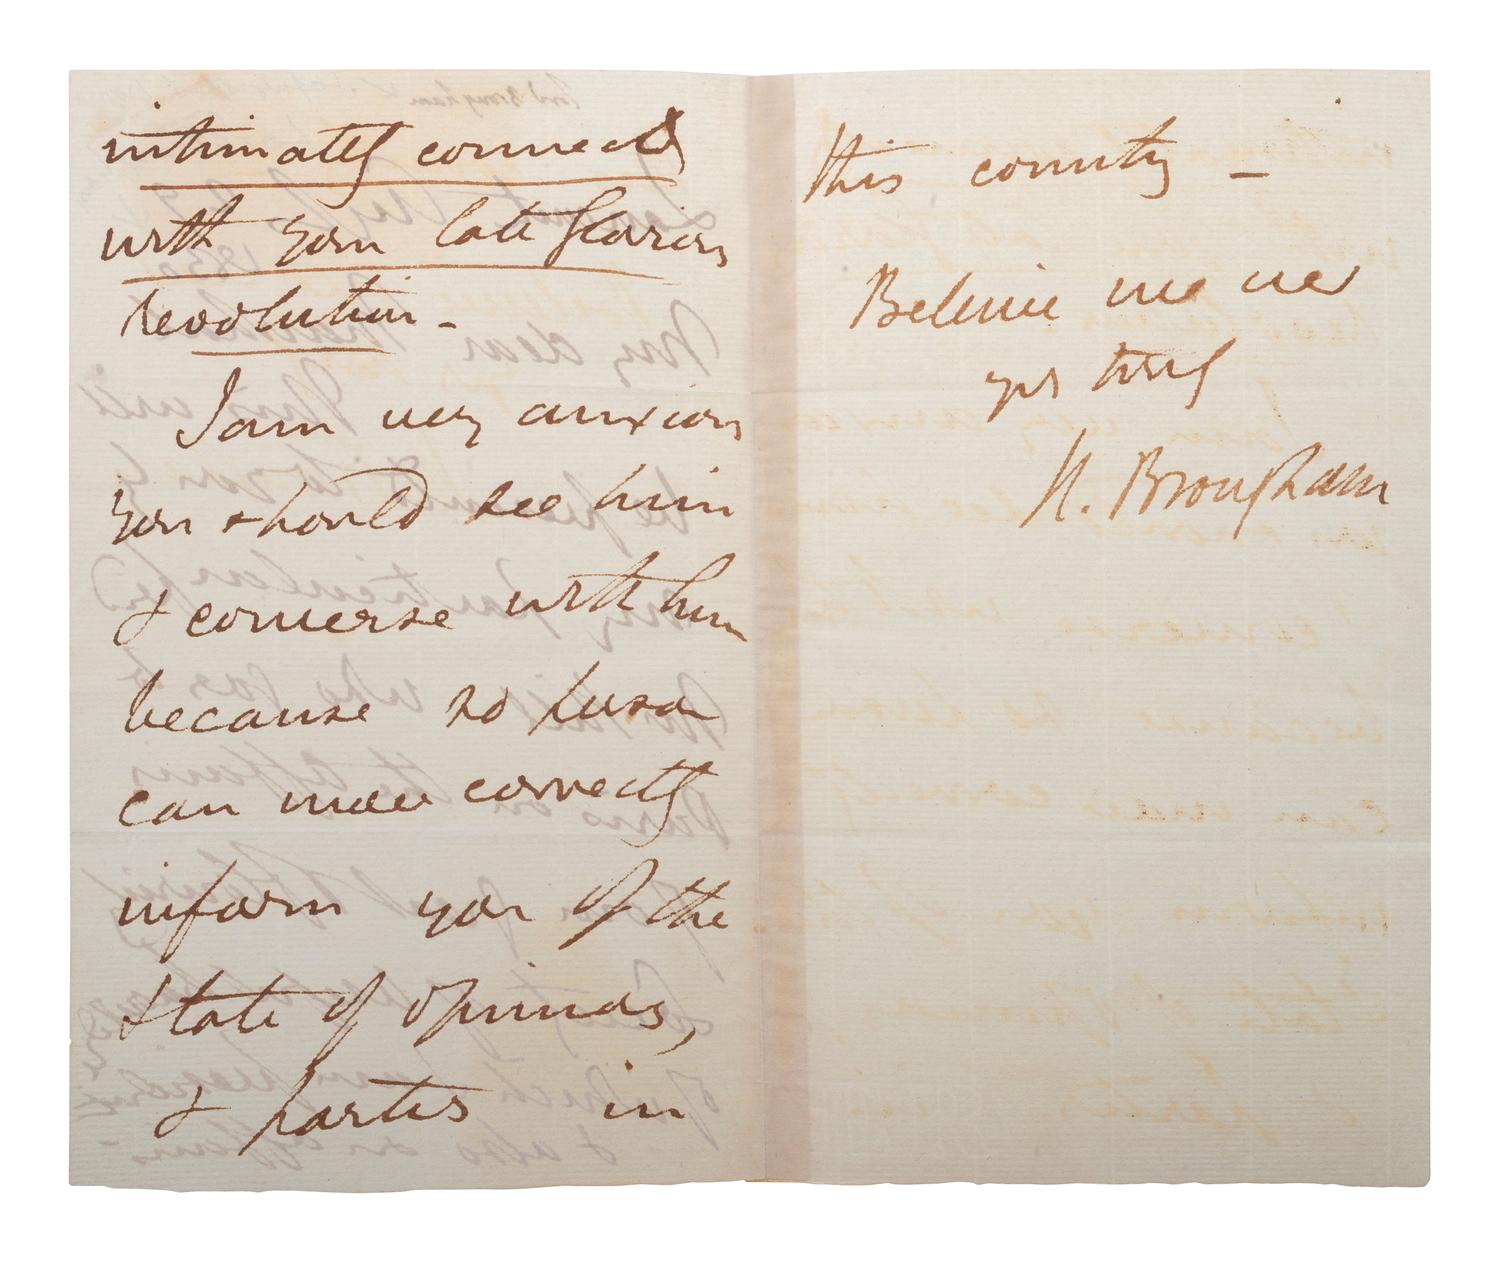 intimately connected
with your late glorious
revolution -
I am very anxious
you should see him
& converse with him
because no person
can more correctly
inform you of the
state of opinions,
& parties in
this country -
Believe me ever
yrs truly
H. Brougham
Lord Brougham
1830
My dear